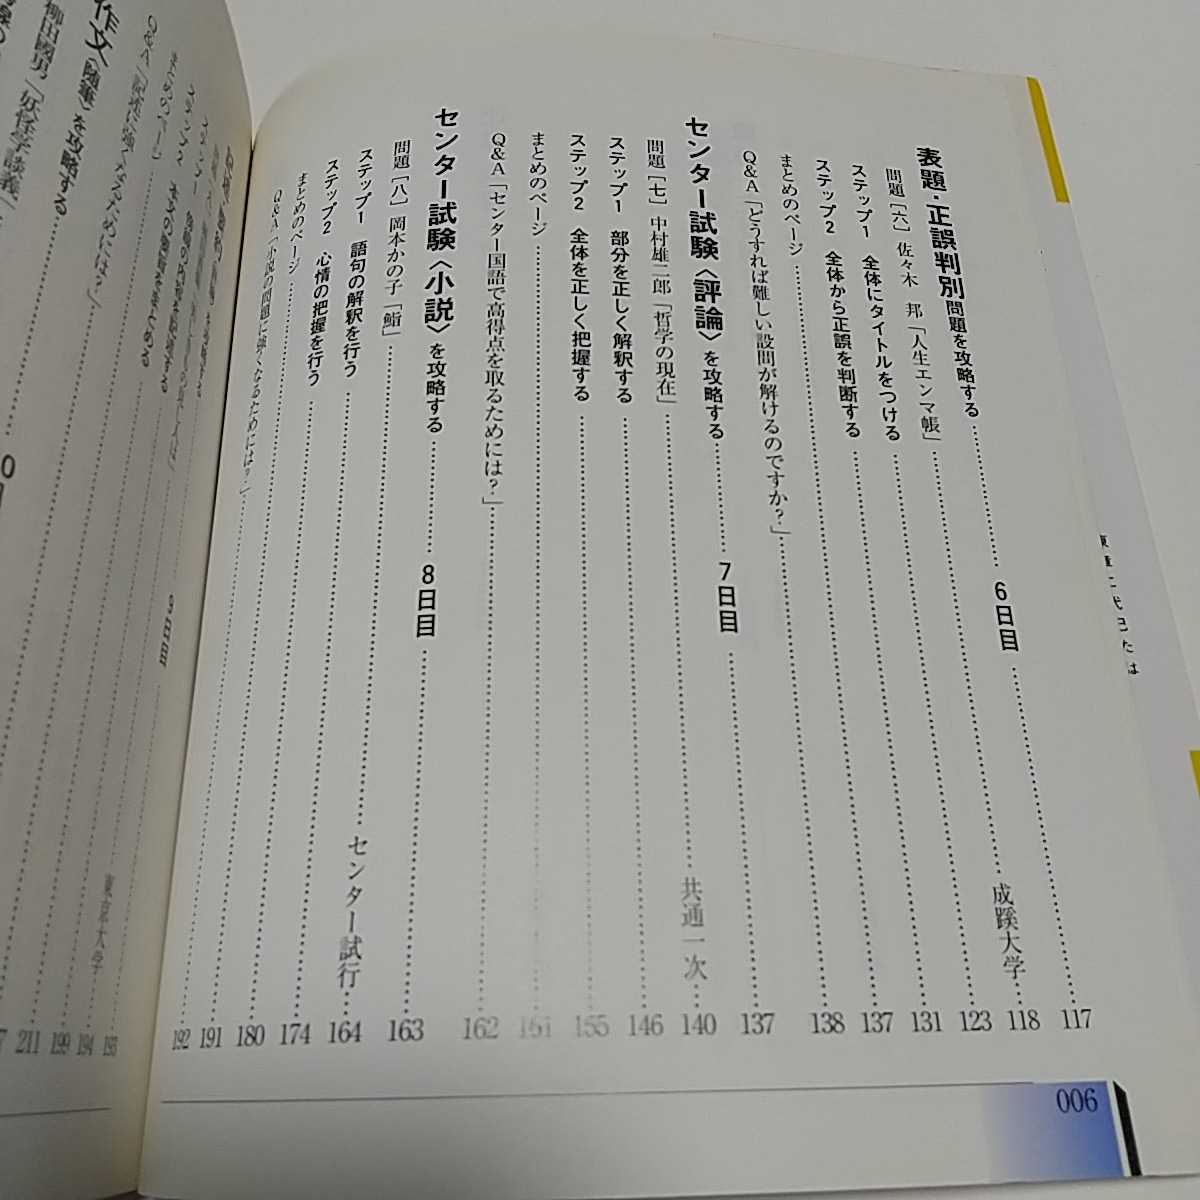 表題・正誤判別問題を攻略する……6日目……117
問題[六] 佐々木 邦「人生エンマ帳」……成蹊大学……118
ステップ1 全体にタイトルをつける……123
ステップ2 全体から正誤を判断する……131
まとめのページ……137
Q&A「どうすれば難しい設問が解けるのですか?」……138
センター試験〈評論〉を攻略する……7日目……137
問題[七] 中村雄二郎「哲学の現在」……共通一次……140
ステップ1 部分を正しく解釈する……146
ステップ2 全体を正しく把握する……155
まとめのページ……161
Q&A「センター国語で高得点を取るためには?」……162
センター試験〈小説〉を攻略する……8日目……163
問題[八] 岡本かの子「鮨」……センター試行……164
ステップ1 語句の解釈を行う……174
ステップ2 心情の把握を行う……180
まとめのページ……191
Q&A「小説の問題に強くなるためには?」……192
006
9日目……193
東京大学……194
199
ステップ2 本文の論理をまとめる……211
まとめのページ
Q&A「記述に強くなるためには?」
作文〈随筆〉を攻略する
柳田國男「妖怪学談義」